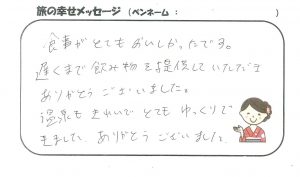 旅の幸せメッセージ (ペンネーム: )
食事がとてもおいしかったです。
遅くまで飲み物を提供していただき
ありがとうございました。
温泉もきれいでとてもゆっくりで
きました。ありがとうございました。